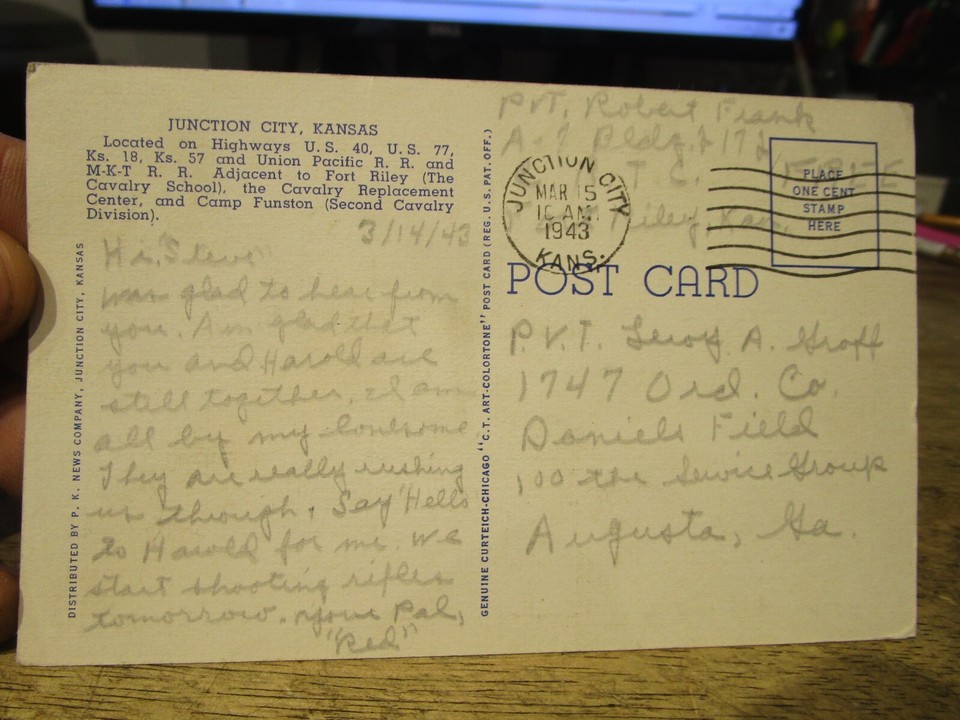 JUNCTION CITY, KANSAS
Located on Highways U. S. 40, U. S. 77,
Ks. 18, Ks. 57 and Union Pacific R. R. and
M-K-T R. R. Adjacent to Fort Riley (The
Cavalry School), the Cavalry Replacement
Center, and Camp Funston (Second Cavalry
Division).
3/14/43
Hi, Steve
was glad to hear from
you. Am glad that
you and Harold are
still together, I am
all by my lonesome
They are really rushing
us through. Say "Hello
to Harold for me. We
start shooting rifles
tomorrow. Your Pal,
"Red"
DISTRIBUTED BY P. K. NEWS COMPANY, JUNCTION CITY, KANSAS
GENUINE CURTEICH-CHICAGO "C. T. ART-COLORTONE" POST CARD (REG. U. S. PAT. OFF.)
Pvt. Robert Frank
A-7 Bldg. 172
T C.
FREE
Riley, Kan.
JUNCTION CITY
MAR 15
10 AM
1943
KANS.
PLACE
ONE CENT
STAMP
HERE
POST CARD
P.V.T. Leroy A. Groff
1747 Ord. Co.
Daniels Field
100 the Service Group
Augusta, Ga.